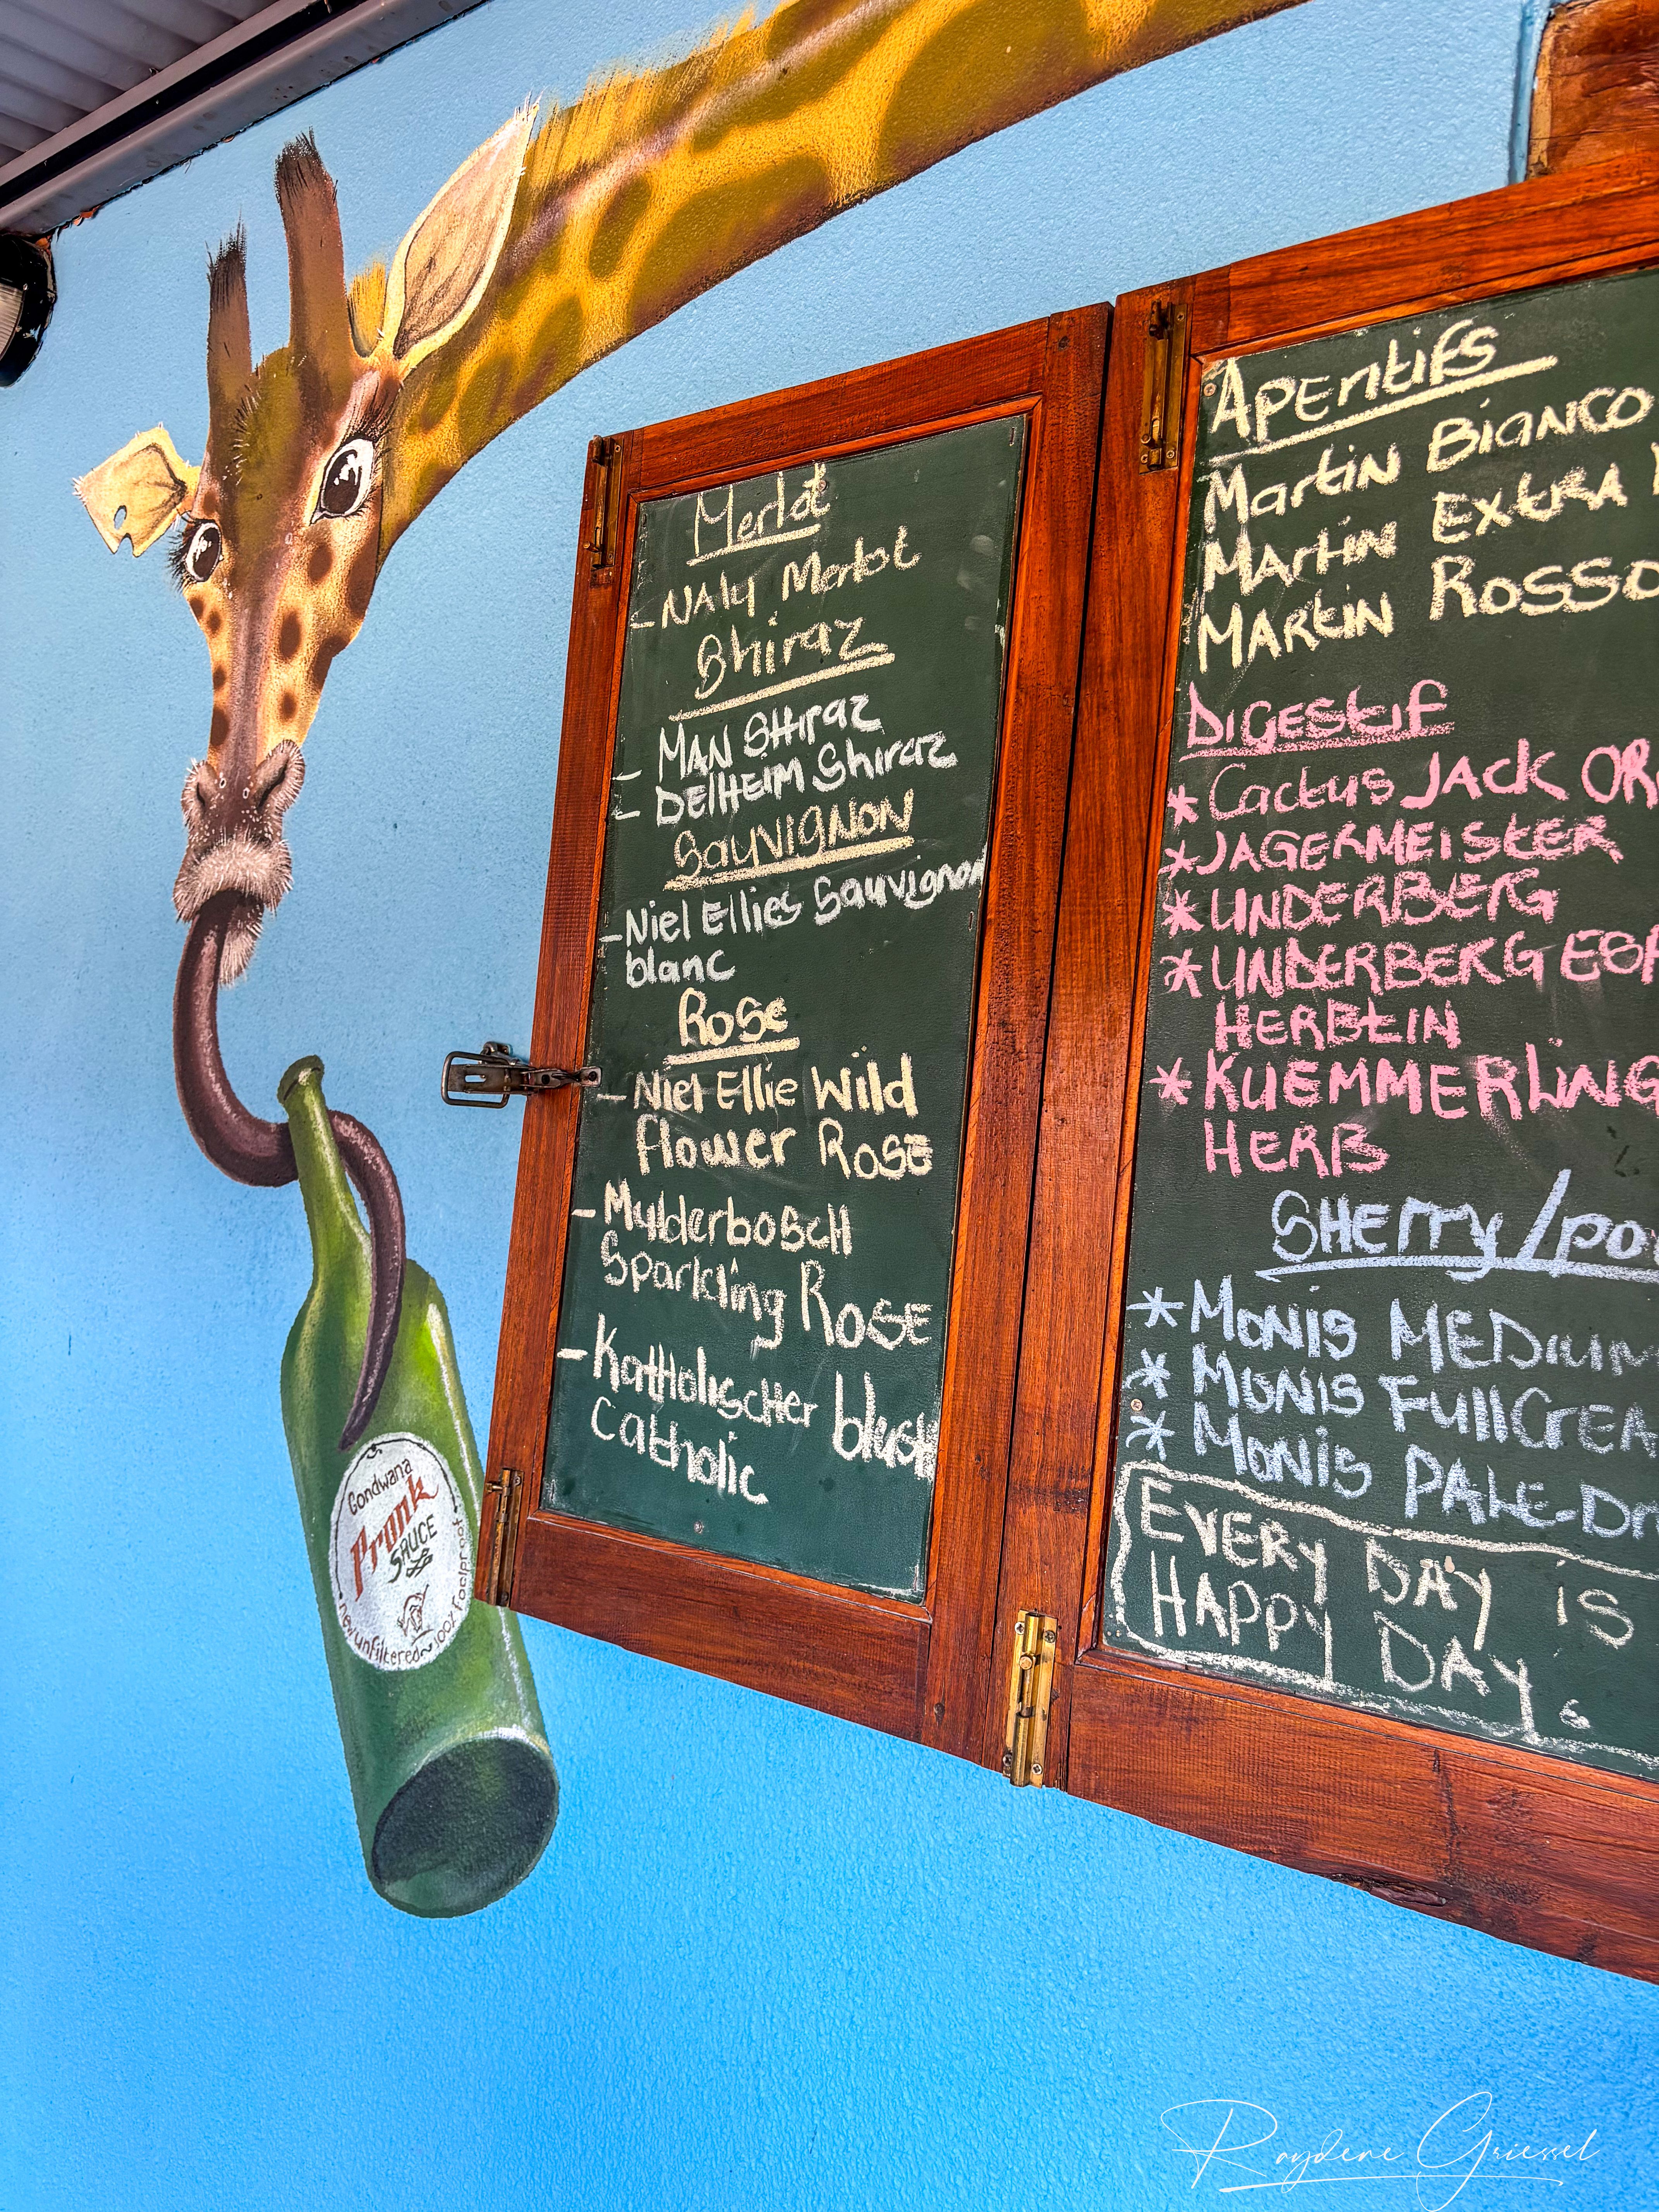 Merlot
- Naly Merlot
Shiraz
- MAN SHiraz
- DElHEIM Shiraz
SauviGNON
- Niel Ellies Sauvignon
blanc
Rose
- Niel Ellie Wild
flower Rose
- MulderboscH
Sparkling Rose
- Katholischer blush
catholic
Aperitifs
Martin Bianco
Martin Extra
Martin Rosso
DiGEStif
* Cactus JACK
* JAGERMEISTER
* UNDERBERG
* UNDERBERG
HERBtIN
* KUEMMERliNG
HERB
SHErry/
* Monis MEDium
* Monis Full
* Monis PALE-
EVERY DAY is
HAPPY DAY
Gondwana
Pronk
SAUCE
new unfiltered ~ 100% foolproof
Raydene Griessel